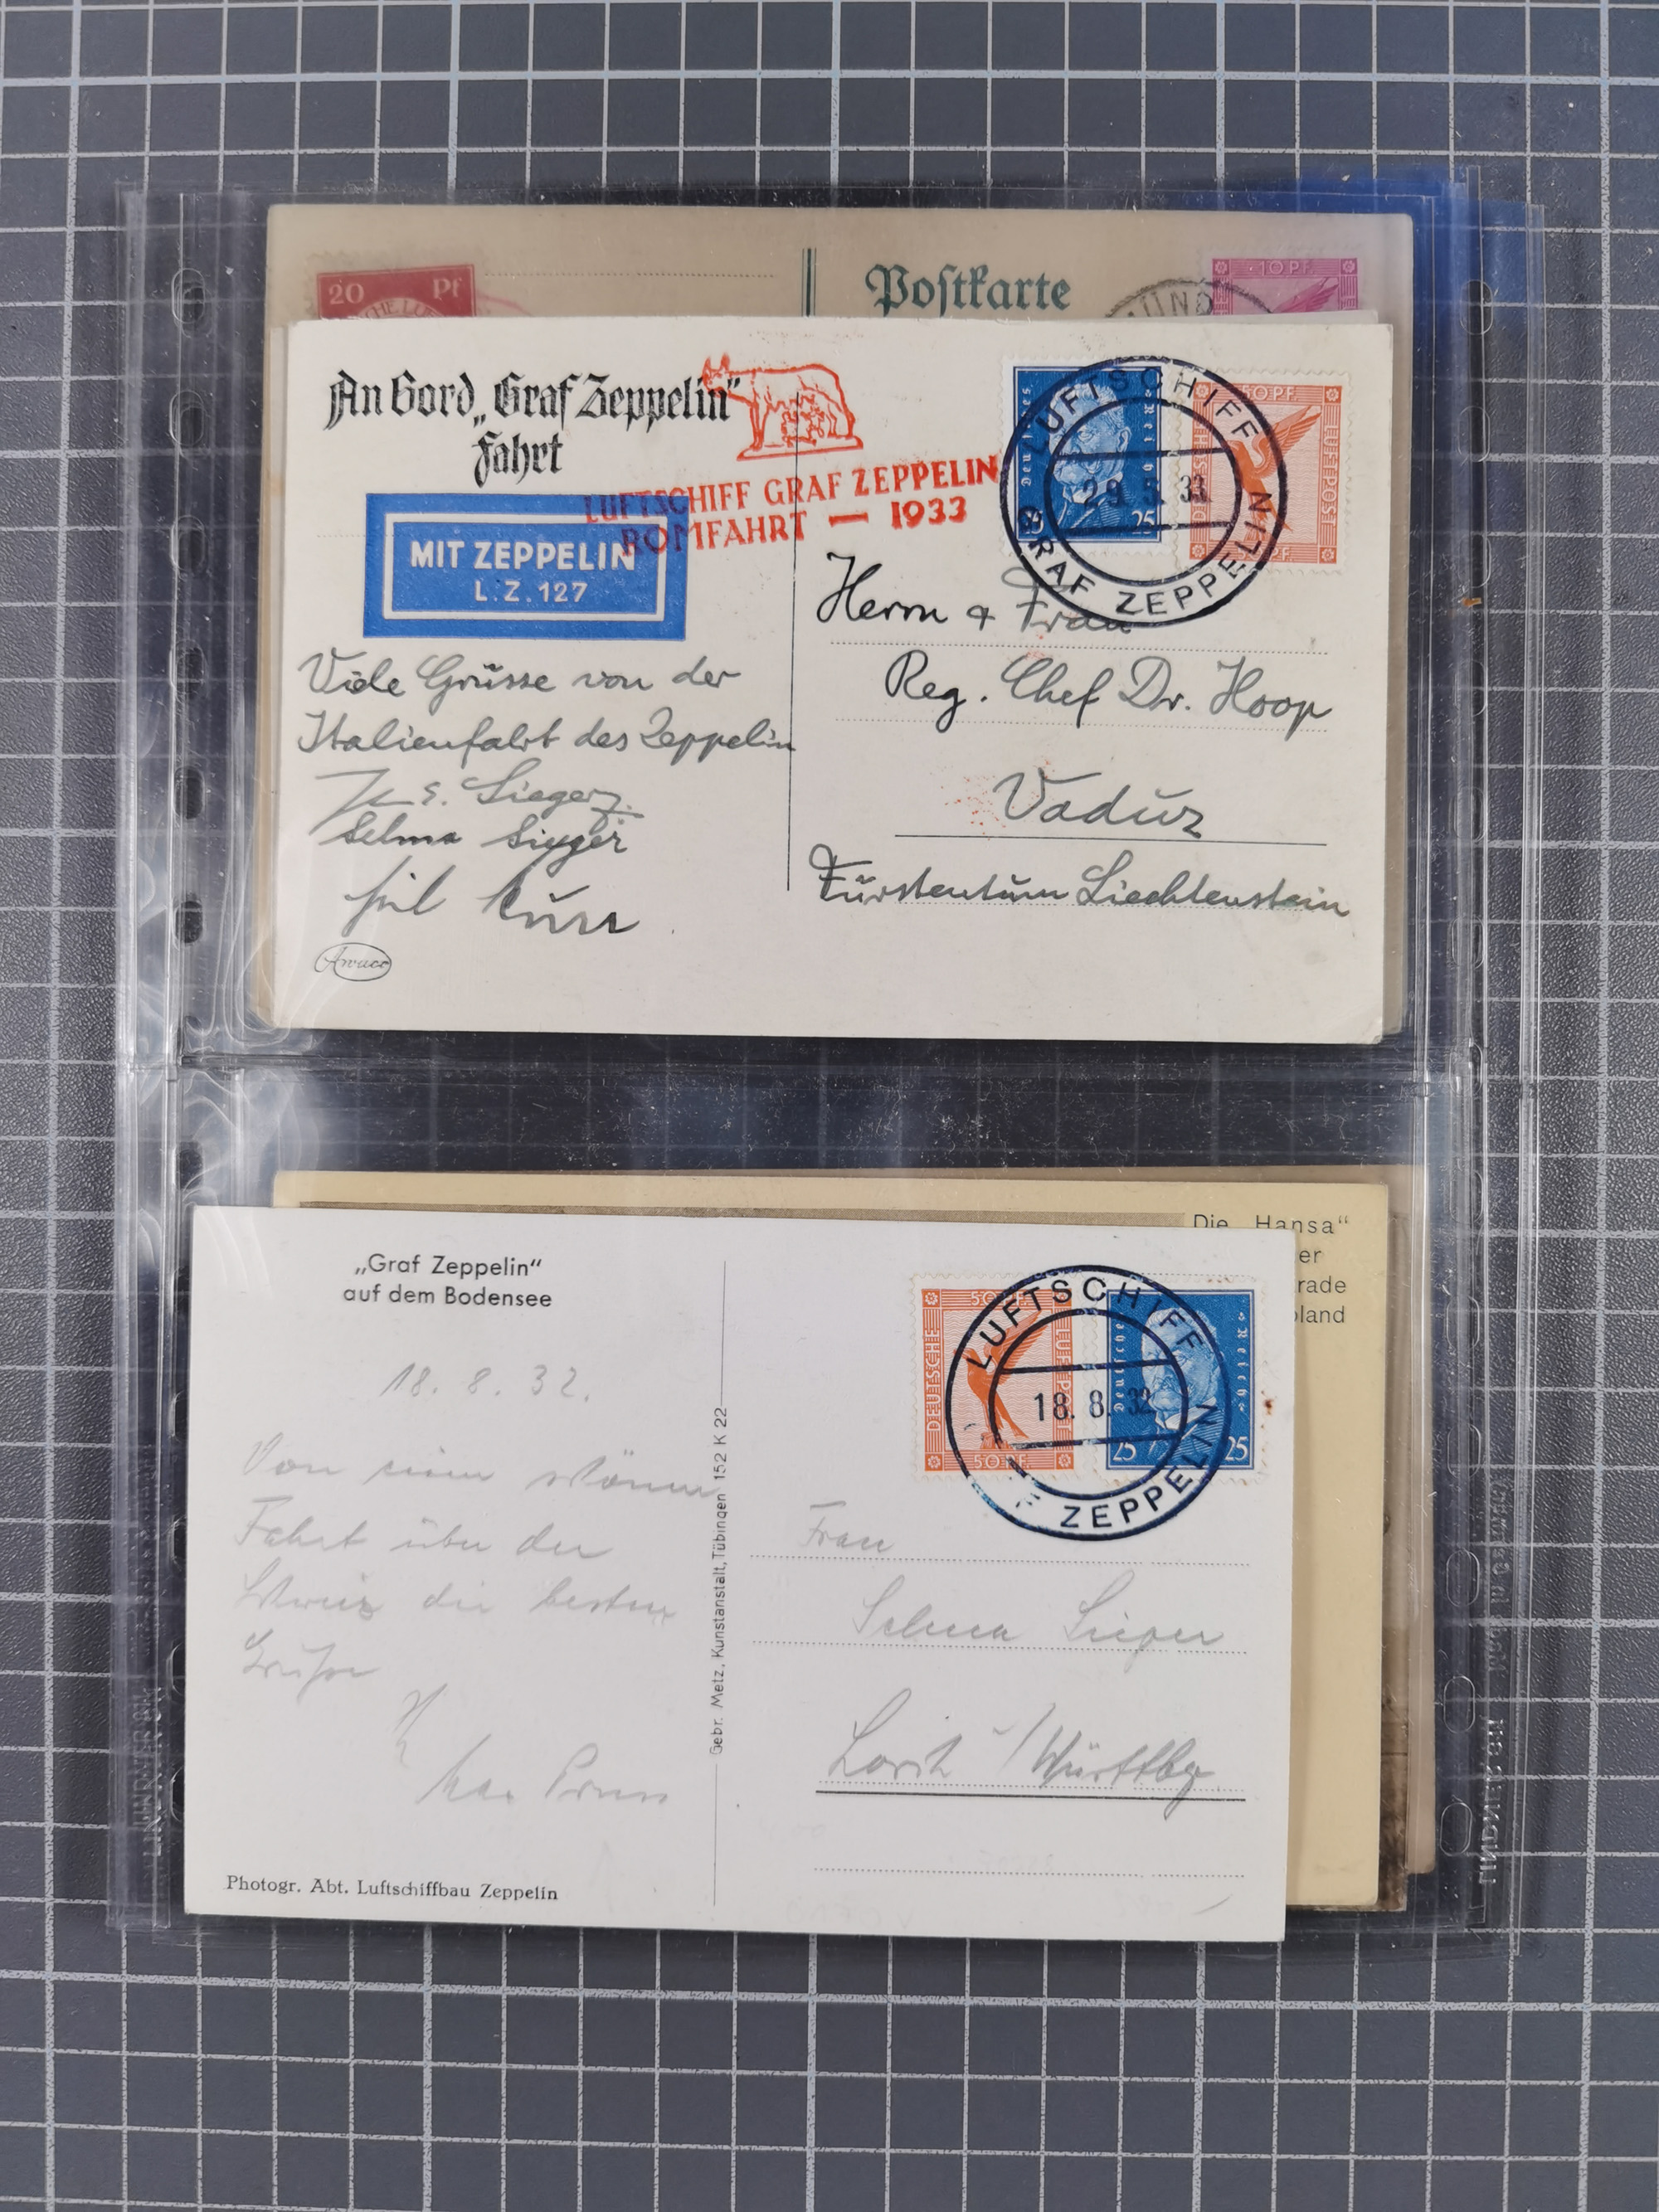 20 Pf
Postkarte
10 PF.
An Bord „Graf Zeppelin“
Fahrt
LUFTSCHIFF GRAF ZEPPELIN
ROMFAHRT — 1933
MIT ZEPPELIN
L.Z. 127
Deutsches Reich
25 25
50 PF.
DEUTSCHE LUFTPOST
50 PF.
LUFTSCHIFF
29.5.33
GRAF ZEPPELIN
Viele Grüsse von der
Italienfahrt des Zeppelin
Selma Sieger
Herrn & Frau
Reg. Chef Dr. Hoop
Vaduz
Fürstentum Liechtenstein
Die „Hansa“
er
rade
oland
„Graf Zeppelin“
auf dem Bodensee
50 PF.
DEUTSCHE LUFTPOST
50 PF.
Deutsches Reich
25 25
LUFTSCHIFF
18.8.32
F ZEPPELIN
18. 8. 32.
Von einer schönen
Fahrt über der
Schweiz die besten
Grüße
Frau
Selma Sieger
Lorch / Württbg.
Gebr. Metz, Kunstanstalt, Tübingen 152 K 22
Photogr. Abt. Luftschiffbau Zeppelin